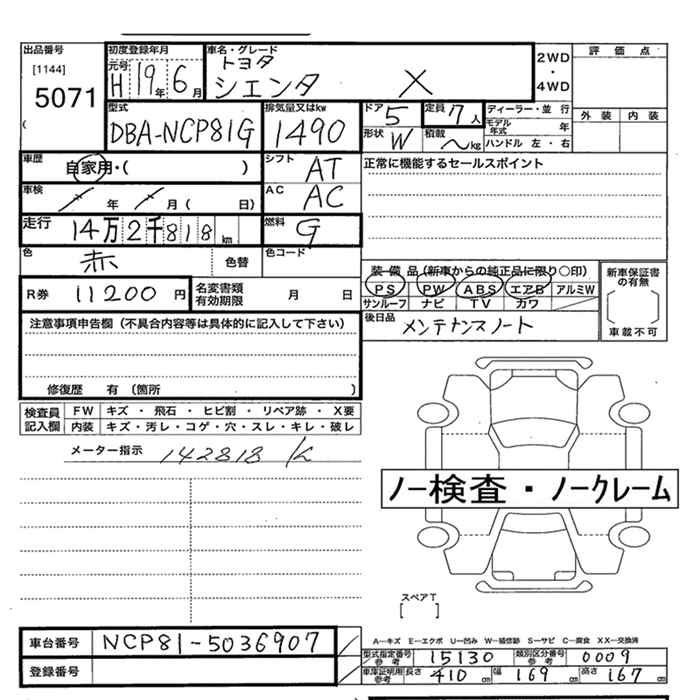 出品番号
[1144]
5071
(
初度登録年月
元号
H 19 年 6 月
車名・グレード
トヨタ
シエンタ X
2WD
・
4WD
評価点
外装 内装
型式
DBA-NCP81G
排気量又はkw
1490
ドア 5
定員 7 人
形状 W
積載 〜 kg
ディーラー・並行
モデル年式 年
ハンドル 左・右
車歴
自家用・( )
シフト
AT
正常に機能するセールスポイント
車検
年 月 ( 日)
AC
AC
走行
14万2千818 km
燃料
G
色
赤
色替
色コード
装備品(新車からの純正品に限り○印)
PS PW ABS エアB アルミW
サンルーフ ナビ TV カワ
新車保証書の有無
[ ]
車載不可
R券 11200 円
名変書類有効期限 月 日
後日品
メンテナンスノート
注意事項申告欄(不具合内容等は具体的に記入して下さい)
修復歴 有(箇所 )
検査員記入欄
FW キズ・飛石・ヒビ割・リペア跡・X要
内装 キズ・汚レ・コゲ・穴・スレ・キレ・破レ
メーター指示 142818 K
ノー検査・ノークレーム
スペアT
[ ]
A―キズ E―エクボ U―凹み W―補修跡 S―サビ C―腐食 XX―交換済
車台番号 NCP81-5036907
登録番号
型式指定番号参考 15130 類別区分番号参考 0009
車庫証明用参考 長さ 410 cm 幅 169 cm 高さ 167 cm